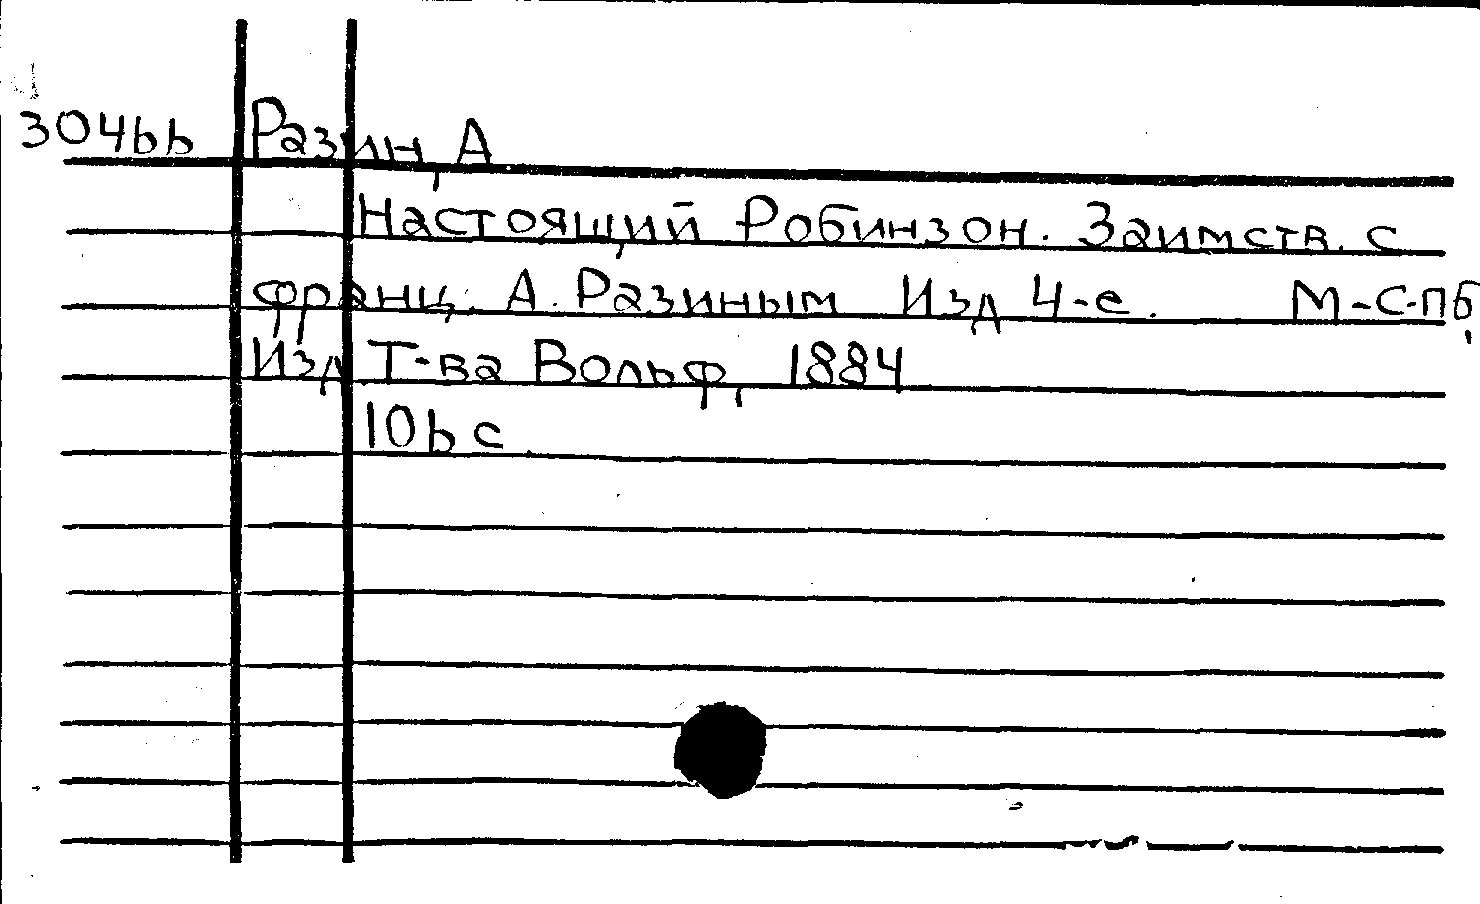 30466 Разин, А
Настоящий Робинзон. Заимств. с
франц. А. Разиным Изд 4-е. М-С-пб,
Изд Т-ва Вольф, 1884
106 с